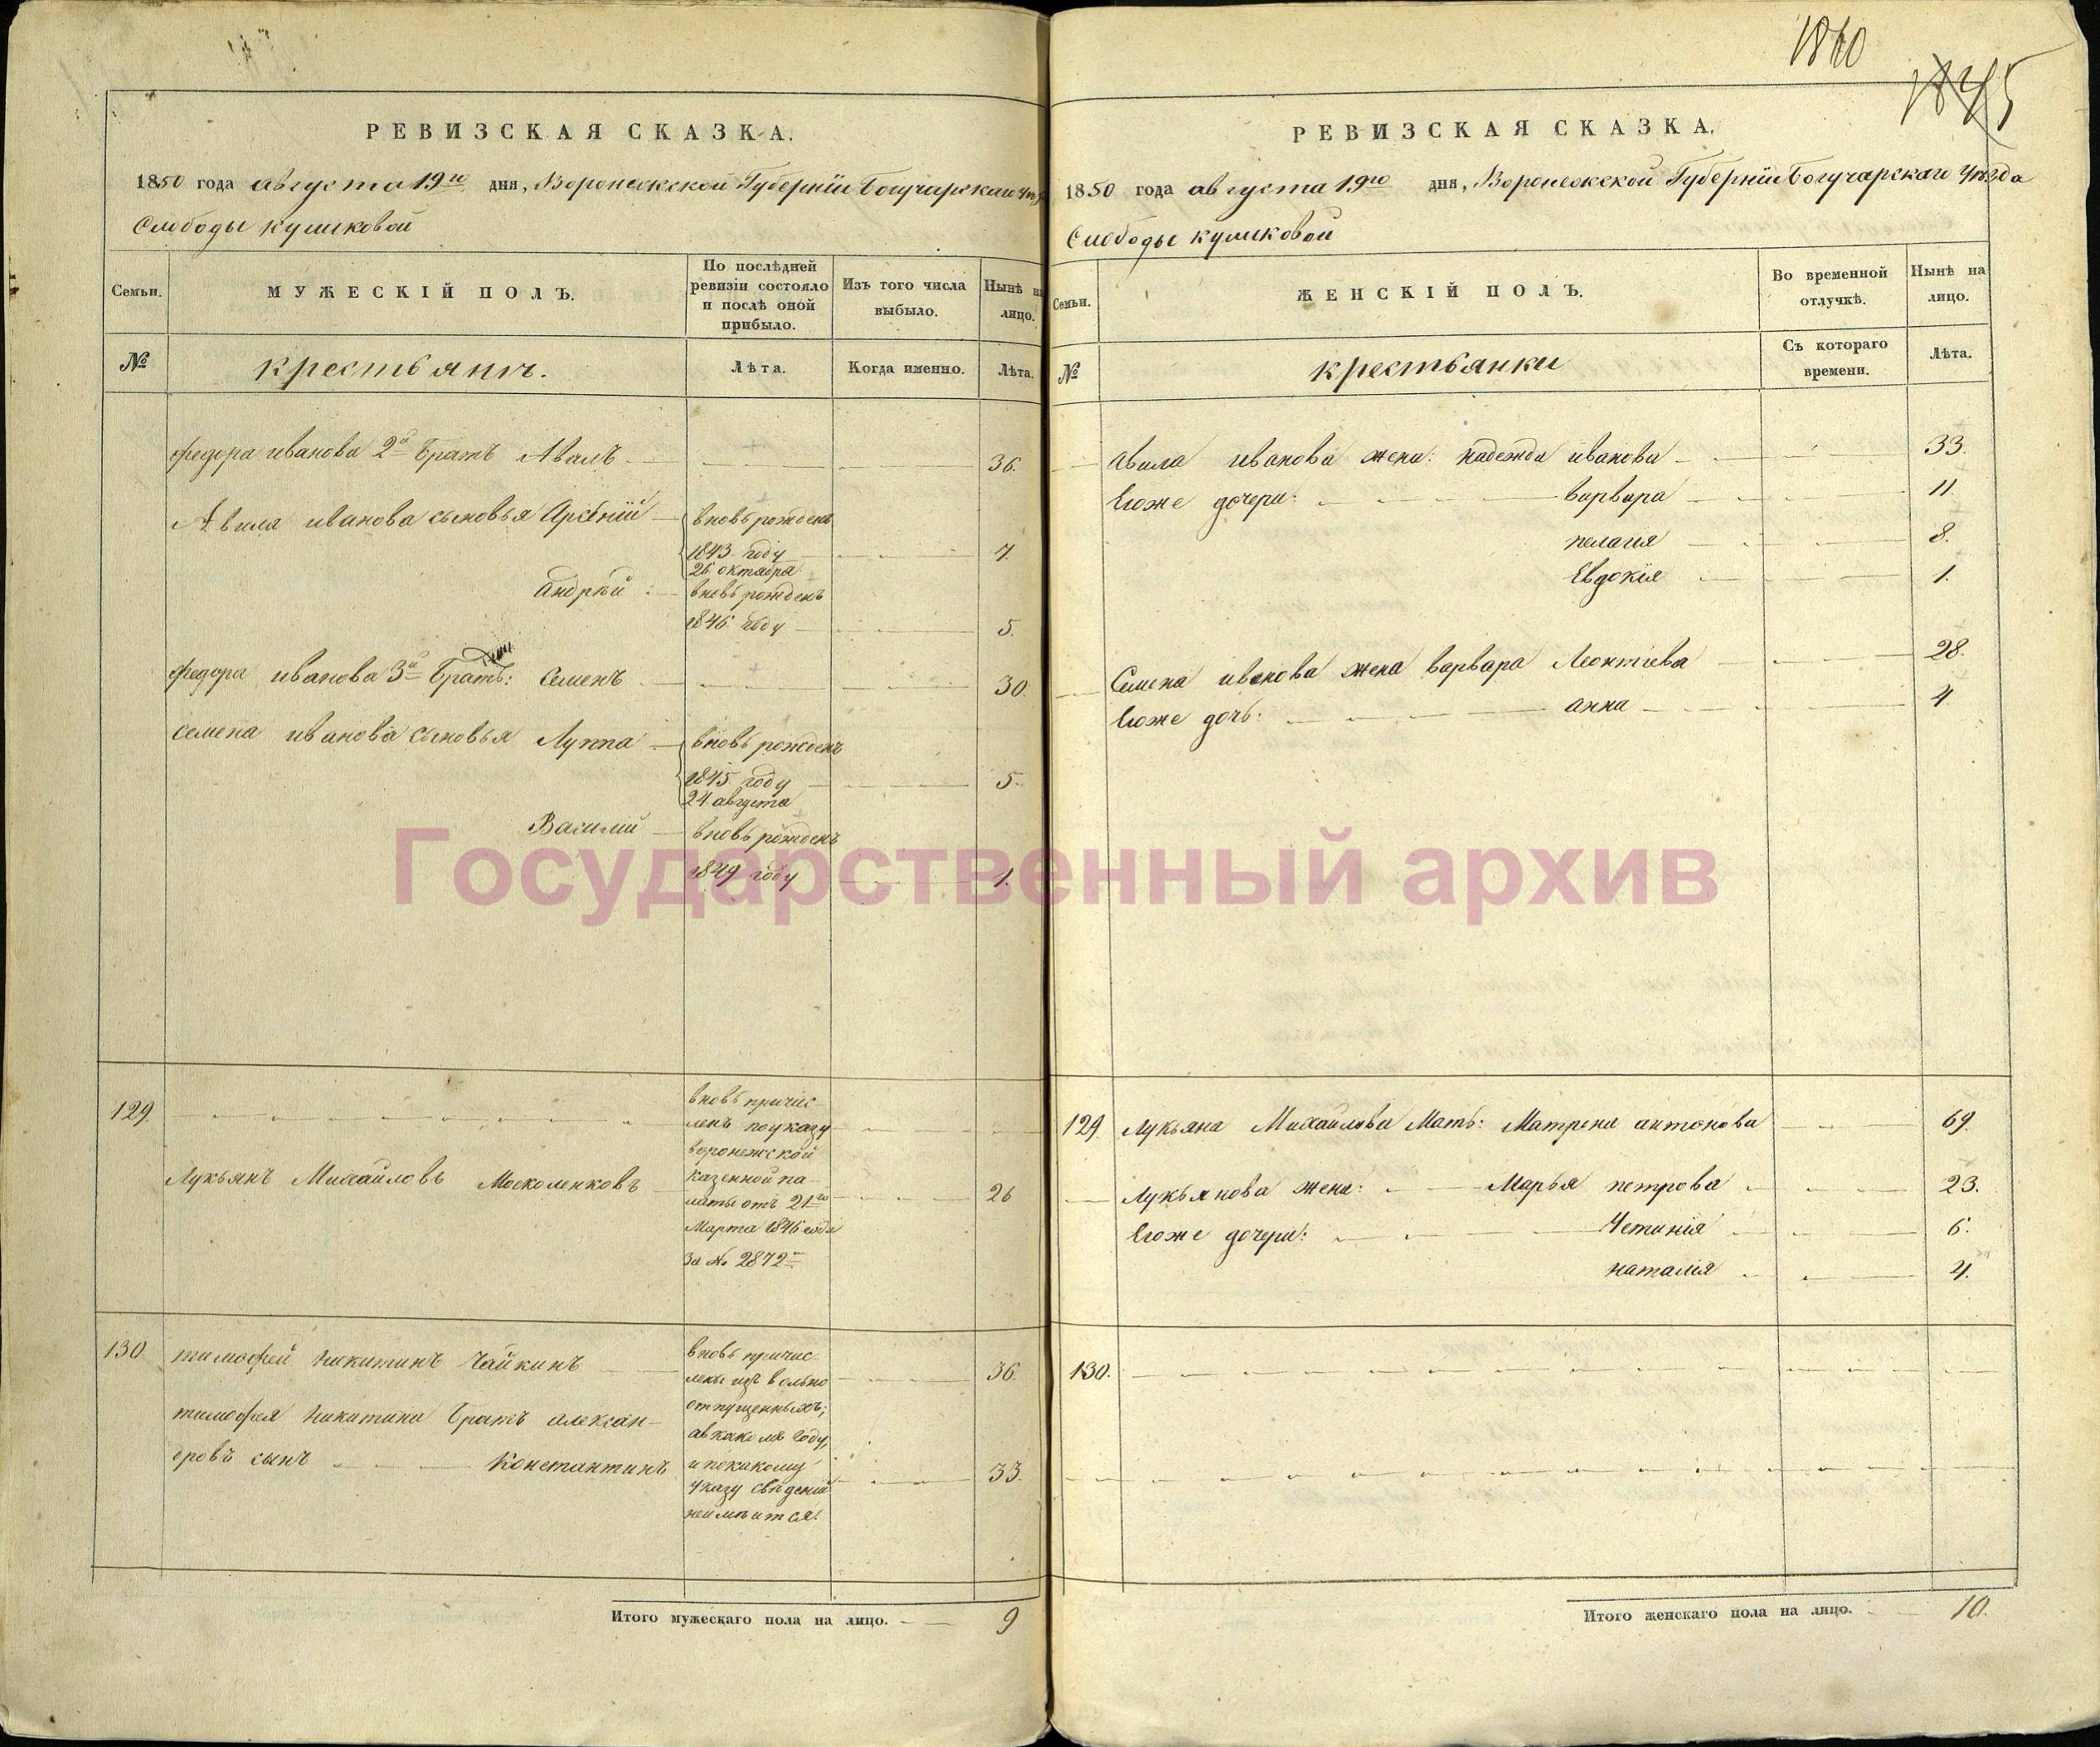 1840
1845
РЕВИЗСКАЯ СКАЗКА.
1850 года августа 19го дня, Воронежской Губерніи Богучарскаго
Слободы куликовой
Семьи.
МУЖЕСКІЙ ПОЛЪ.
По послѣдней ревизіи состояло и послѣ оной прибыло.
Изъ того числа выбыло.
Нынѣ на лицо.
№
крестьянъ.
Лѣта.
Когда именно.
Лѣта.
федора иванова 2й братъ Авилъ 36.
Авила иванова сыновья Арсеній вновь рожденъ
1843 году 7.
26 октября
андрѣй: вновь рожденъ
1846 году 5.
федора иванова 3й братъ: Семенъ 30.
семена иванова сыновья Луппа вновь рожденъ
1845 году 5.
24 августа
Василий вновь рожденъ
1849 году 1.
129. вновь причис
ленъ по указу
воронежской
Лукьянъ Михайловъ Москаленковъ казенной па
латы отъ 21го 26
Марта 1846 года
за № 2872м
130 тимофей никитинъ Чайкинъ вновь причис
лены изъ вольно 36.
тимофея никитина братъ алексан- отпущенныхъ;
авкакомъ году,
дровъ сынъ Константинъ и покакому 33.
указу свѣденій
неимѣитса.
Итого мужескаго пола на лицо. 9
РЕВИЗСКАЯ СКАЗКА.
1850 года августа 19го дня, Воронежской Губерніи Богучарскаго уѣзда
Слободы куликовой
Семьи.
ЖЕНСКІЙ ПОЛЪ.
Во временной отлучкѣ.
Нынѣ на лицо.
№
крестьянки
Съ котораго времени.
Лѣта.
авила иванова жена: надежда иванова 33.
Егоже дочери: варвара 11.
пелагия 8.
Евдокія 1.
Семена иванова жена варвара Леонтіева 28.
Егоже дочь: анна 4.
129. Лукьяна Михайлова Мать: Матрена антонова 69.
Лукьянова жена: Марья петрова 23.
Егоже дочери: Устинія 6.
наталія 4.
130.
Итого женскаго пола на лицо. 10.
Государственный архив